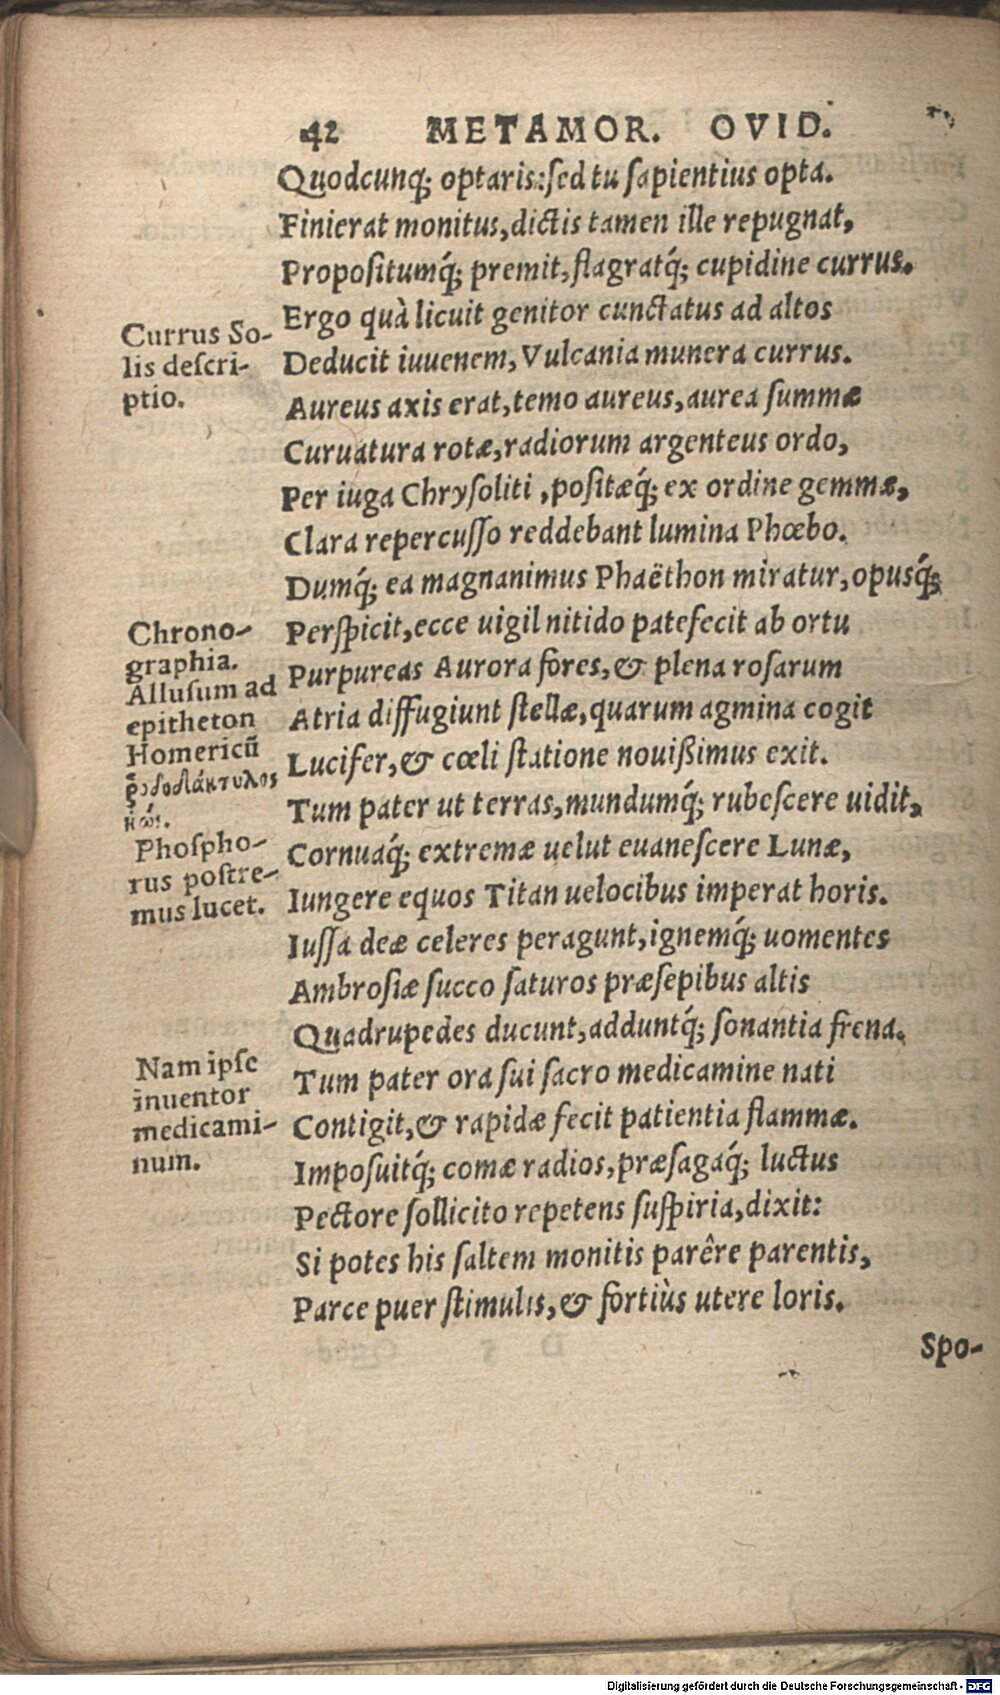 42 METAMOR. OVID.
Quodcunq́; optaris: sed tu sapientius opta.
Finierat monitus, dictis tamen ille repugnat,
Propositumq́; premit, flagratq́; cupidine currus.
Ergo quà licuit genitor cunctatus ad altos
Deducit iuuenem, Vulcania munera currus.
Aureus axis erat, temo aureus, aurea summæ
Curuatura rotæ, radiorum argenteus ordo,
Per iuga Chrysoliti, positæq́; ex ordine gemmæ,
Clara repercusso reddebant lumina Phœbo.
Dumq́; ea magnanimus Phaëthon miratur, opusq́;
Perspicit, ecce uigil nitido patefecit ab ortu
Purpureas Aurora fores, & plena rosarum
Atria diffugiunt stellæ, quarum agmina cogit
Lucifer, & cœli statione nouißimus exit.
Tum pater ut terras, mundumq́; rubescere uidit,
Cornuaq́; extremæ uelut euanescere Lunæ,
Iungere equos Titan uelocibus imperat horis.
Iussa deæ celeres peragunt, ignemq́; uomentes
Ambrosiæ succo saturos præsepibus altis
Quadrupedes ducunt, adduntq́; sonantia frena.
Tum pater ora sui sacro medicamine nati
Contigit, & rapidæ fecit patientia flammæ.
Imposuitq́; comæ radios, præsagaq́; luctus
Pectore sollicito repetens suspiria, dixit:
Si potes his saltem monitis parêre parentis,
Parce puer stimulis, & fortiùs utere loris.
Spo-
Currus So-
lis descri-
ptio.
Chrono-
graphia.
Allusum ad
epitheton
Homericũ
ῥοδοδάκτυλος
ἠώς.
Phospho-
rus postre-
mus lucet.
Nam ipse
inuentor
medicami-
num.
Digitalisierung gefördert durch die Deutsche Forschungsgemeinschaft - DFG